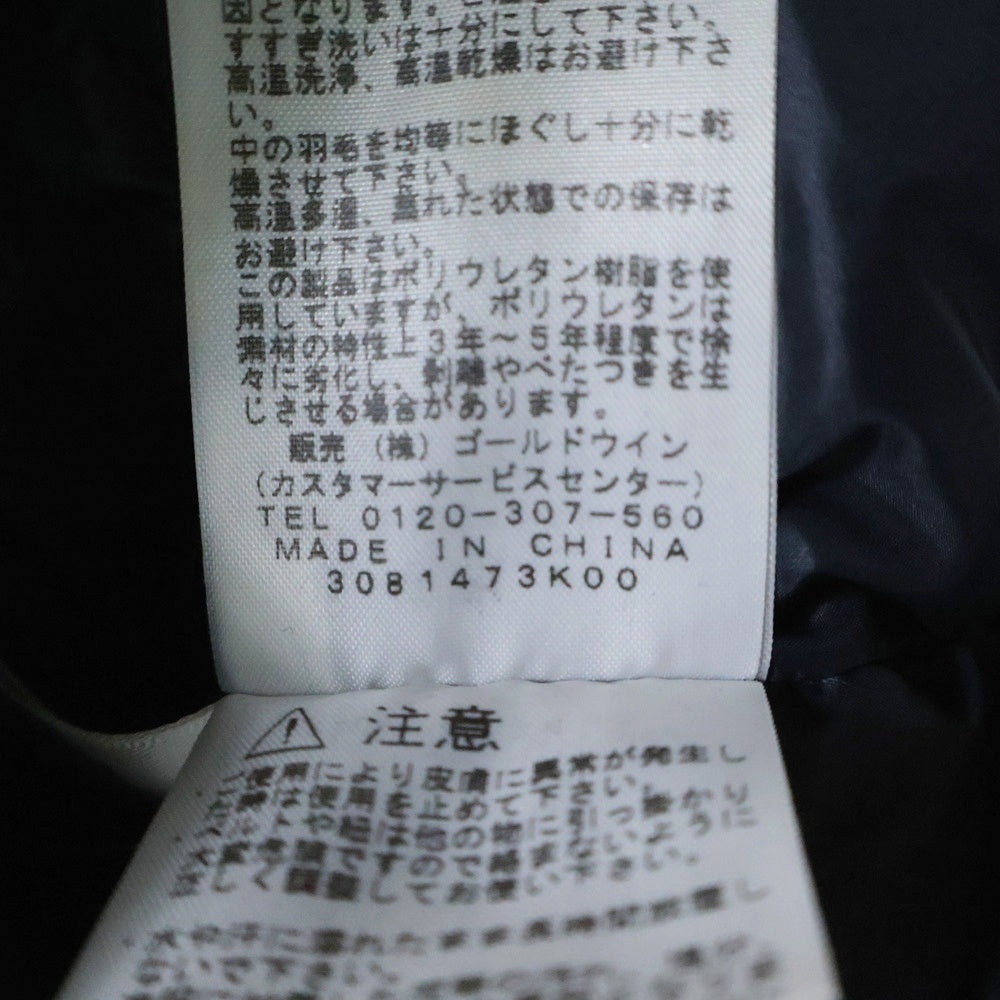 因となります。
すすぎ洗いは十分にして下さい。
高温洗浄、高温乾燥はお避け下さ
い。
中の羽毛を均等にほぐし十分に乾
燥させて下さい。
高温多湿、蒸れた状態での保存は
お避け下さい。
この製品はポリウレタン樹脂を使
用していますが、ポリウレタンは
素材の特性上3年〜5年程度で徐
々に劣化し、剥離やべたつきを生
じさせる場合があります。
販売 (株) ゴールドウイン
(カスタマーサービスセンター)
TEL 0120-307-560
MADE IN CHINA
3081473K00
注意
使用により皮膚に異常が発生し
使用を止めて下さい。
時に引っ掛かり
ないように
調整してお使い下さい。
に濡れたまま長時間放置し